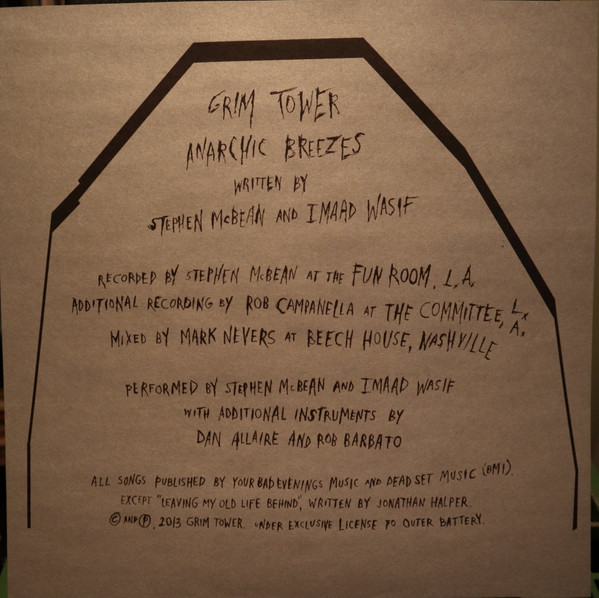 GRIM TOWER
ANARCHIC BREEZES
WRITTEN BY
STEPHEN McBEAN AND IMAAD WASIF
RECORDED BY STEPHEN McBEAN AT THE FUN ROOM, L.A.
ADDITIONAL RECORDING BY ROB CAMPANELLA AT THE COMMITTEE, L.A.
MIXED BY MARK NEVERS AT BEECH HOUSE, NASHVILLE
PERFORMED BY STEPHEN McBEAN AND IMAAD WASIF
WITH ADDITIONAL INSTRUMENTS BY
DAN ALLAIRE AND ROB BARBATO
ALL SONGS PUBLISHED BY YOUR BAD EVENINGS MUSIC AND DEAD SET MUSIC (BMI).
EXCEPT "LEAVING MY OLD LIFE BEHIND", WRITTEN BY JONATHAN HALPER.
© AND ℗, 2013 GRIM TOWER. UNDER EXCLUSIVE LICENSE TO OUTER BATTERY.